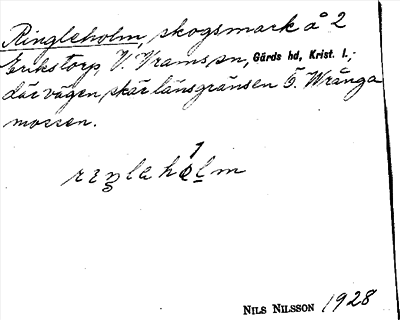 Ringleholm, skogsmark å 2
Erikstorp V. Vrams sn, Gärds hd, Krist. l.;
där vägen skär länsgränsen Ö. Wrånga
mossen.
NILS NILSSON 1928